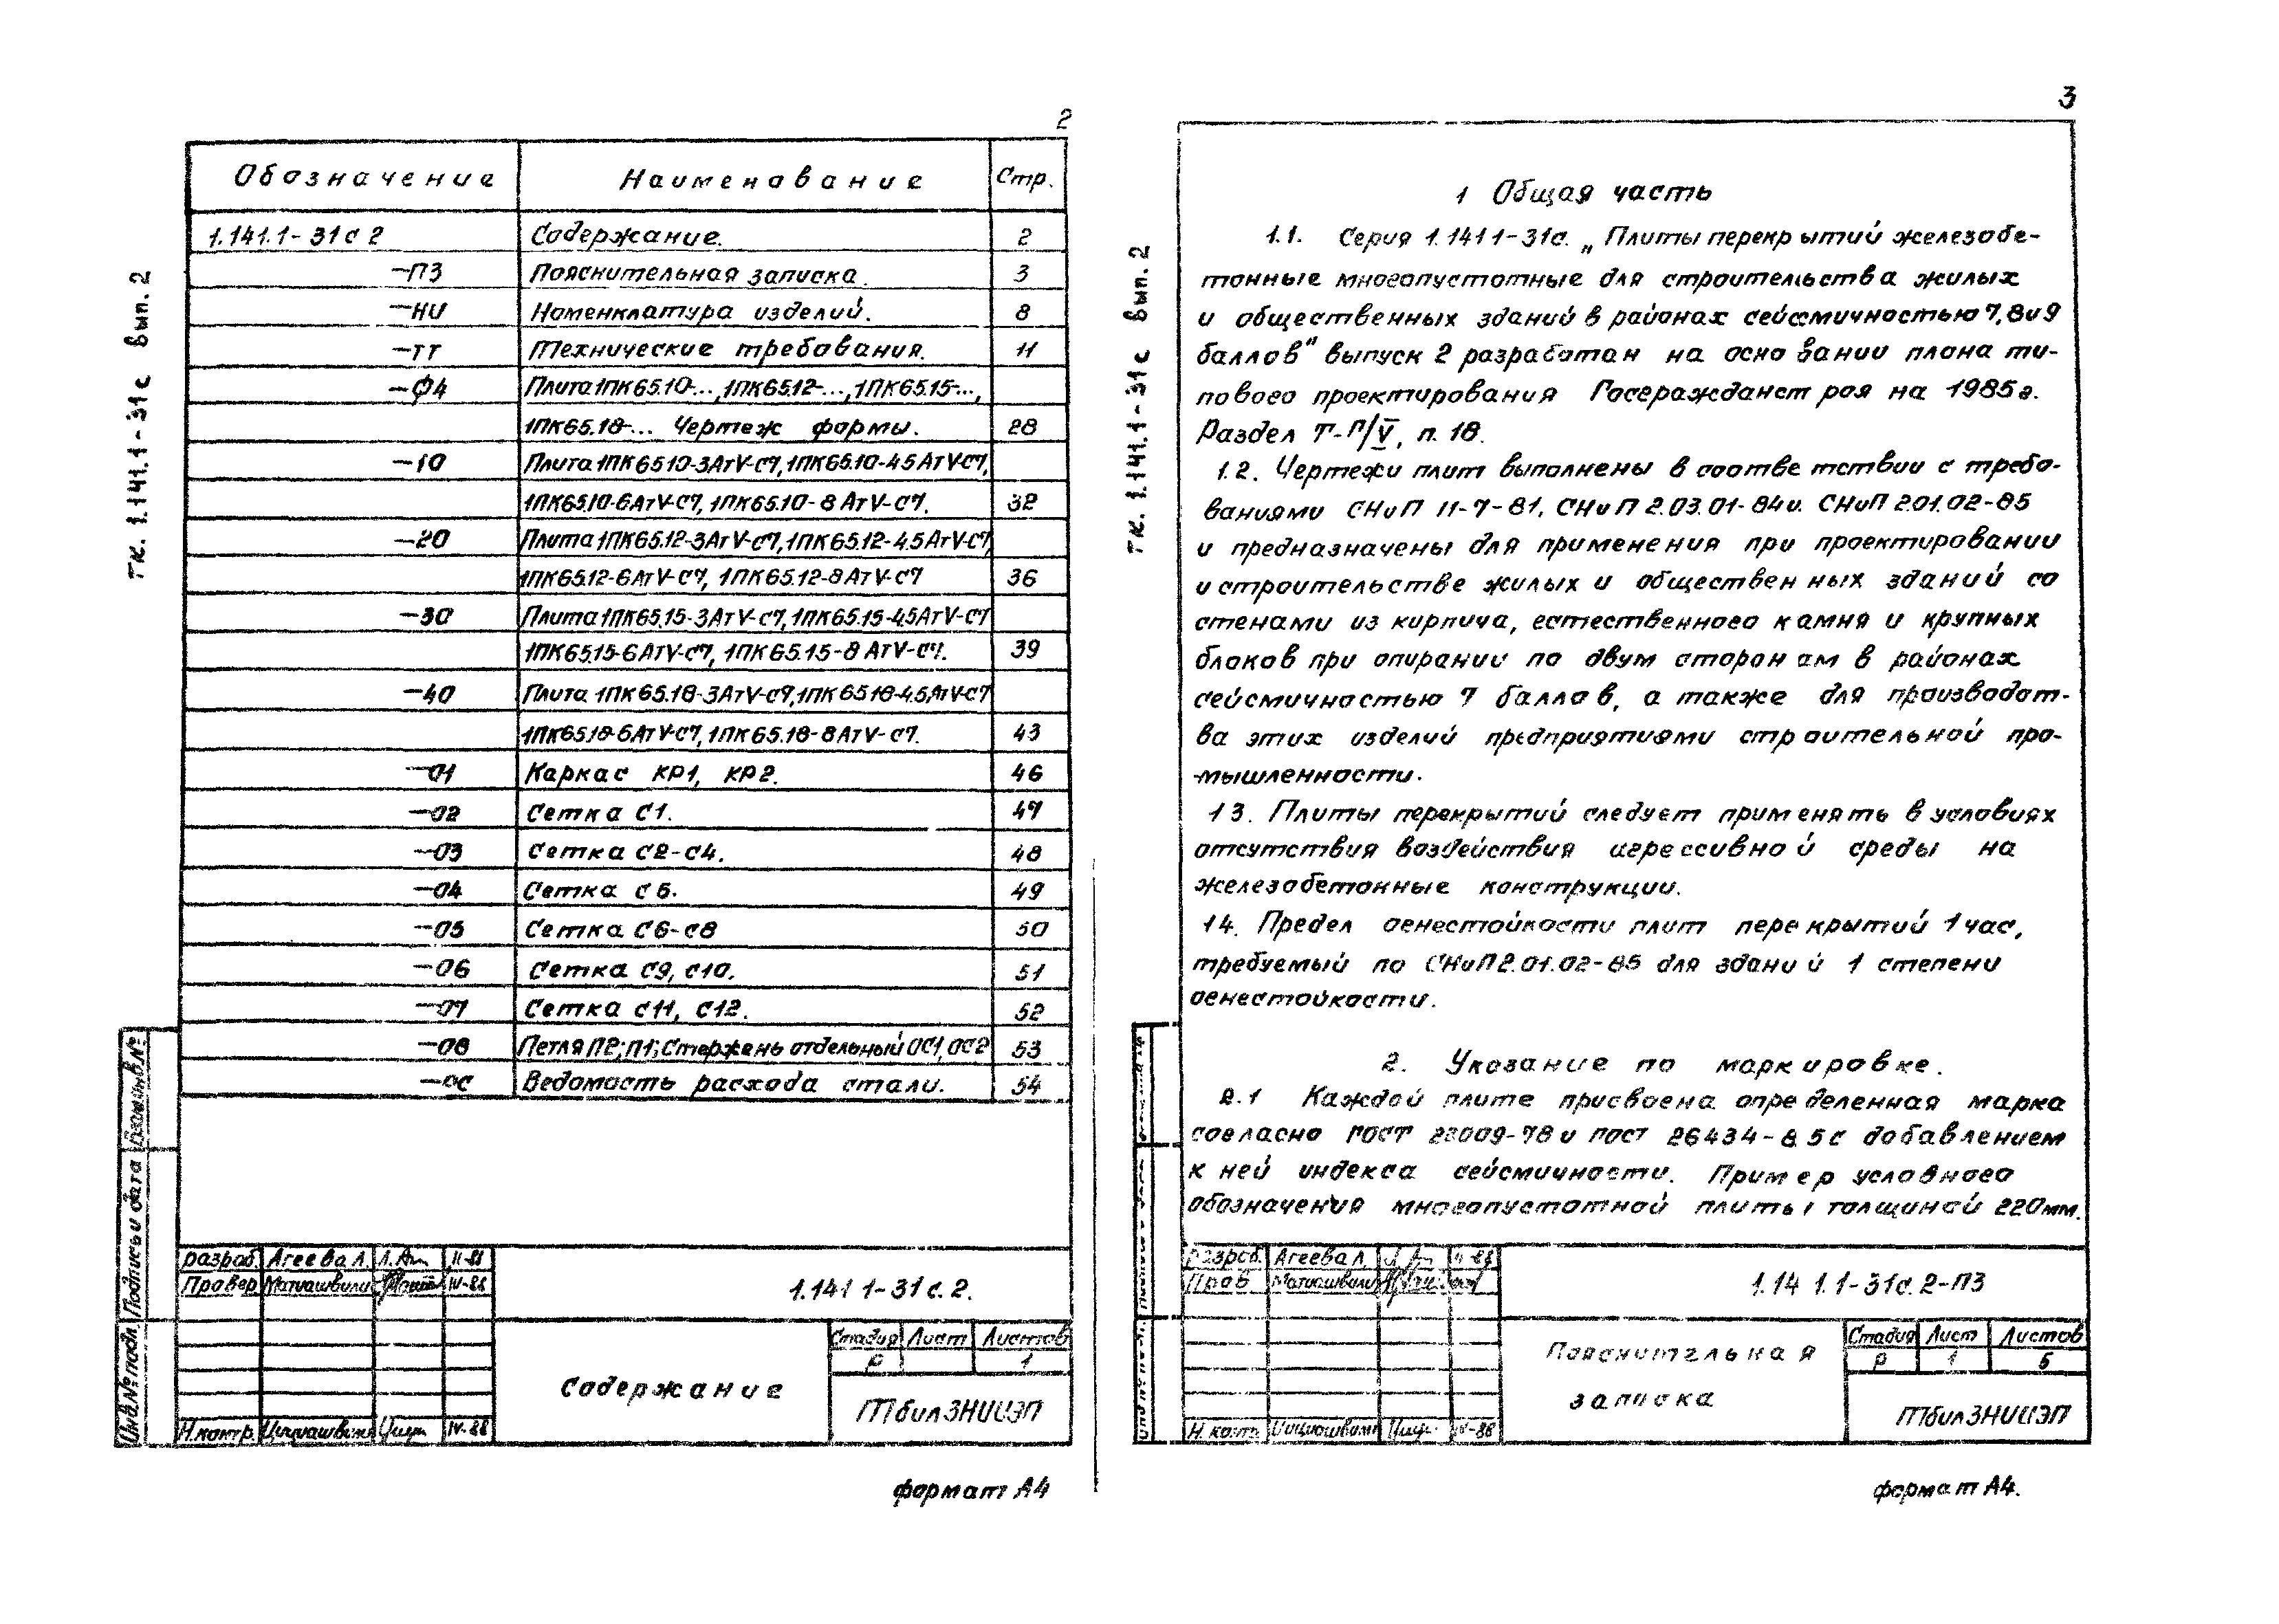 2
тк. 1.141.1-31с вып. 2
Обозначение Наименование Стр.
1.141.1-31с 2 Содержание. 2
—ПЗ Пояснительная записка. 3
—НИ Номенклатура изделий. 8
—ТТ Технические требования. 11
—Ф4 Плита 1ПК65.10-..., 1ПК65.12-..., 1ПК65.15-...,
1ПК65.18-... Чертеж формы. 28
—10 Плита 1ПК65.10-3АтV-С7, 1ПК65.10-4.5АтV-С7,
1ПК65.10-6АтV-С7, 1ПК65.10-8АтV-С7. 32
—20 Плита 1ПК65.12-3АтV-С7, 1ПК65.12-4.5АтV-С7
1ПК65.12-6АтV-С7, 1ПК65.12-8АтV-С7 36
—30 Плита 1ПК65.15-3АтV-С7, 1ПК65.15-4.5АтV-С7
1ПК65.15-6АтV-С7, 1ПК65.15-8АтV-С7. 39
—40 Плита 1ПК65.18-3АтV-С7, 1ПК65.18-4.5АтV-С7
1ПК65.18-6АтV-С7, 1ПК65.18-8АтV-С7. 43
—01 Каркас КР1, КР2. 46
—02 Сетка С1. 47
—03 Сетка С2-С4. 48
—04 Сетка С5. 49
—05 Сетка С6-С8 50
—06 Сетка С9, С10. 51
—07 Сетка С11, С12. 52
—08 Петля П2; П1; Стержень отдельный ОС1, ОС2 53
—РС Ведомость расхода стали. 54
Инв.№ подл. Подпись и дата Взам.инв.№
Разраб. Агеева Л. IV-88
Провер Матиашвили IV-88
Н.контр. IV-88
1.141 1-31с. 2.
Содержание
Стадия Лист Листов
Р 1
ТбилЗНИИЭП
формат А4
3
тк. 1.141.1-31с вып. 2
1 Общая часть
1.1. Серия 1.141 1-31с. „Плиты перекрытий железобе-
тонные многопустотные для строительства жилых
и общественных зданий в районах сейсмичностью 7, 8 и 9
баллов" выпуск 2 разработан на основании плана ти-
пового проектирования Госгражданстроя на 1985 г.
Раздел Т-П/V, п. 18.
1.2. Чертежи плит выполнены в соответствии с требо-
ваниями СНиП II-7-81, СНиП 2.03.01-84 и. СНиП 2.01.02-85
и предназначены для применения при проектировании
и строительстве жилых и общественных зданий со
стенами из кирпича, естественного камня и крупных
блоков при опирании по двум сторонам в районах
сейсмичностью 7 баллов, а также для производст-
ва этих изделий предприятиями строительной про-
мышленности.
1 3. Плиты перекрытий следует применять в условиях
отсутствия воздействия агрессивной среды на
железобетонные конструкции.
1 4. Предел огнестойкости плит перекрытий 1 час,
требуемый по СНиП 2.01.02-85 для зданий 1 степени
огнестойкости.
2. Указание по маркировке.
2.1 Каждой плите присвоена определенная марка
согласно ГОСТ 23009-78 и ГОСТ 26434-85 с добавлением
к ней индекса сейсмичности. Пример условного
обозначения многопустотной плиты толщиной 220 мм.
Разраб. Агеева Л. IV-88
Пров Матиашвили
Н.контр IV-88
1.14 1.1-31с. 2-ПЗ
Пояснительная
записка
Стадия Лист Листов
Р 1 5
ТбилЗНИИЭП
формат А4.